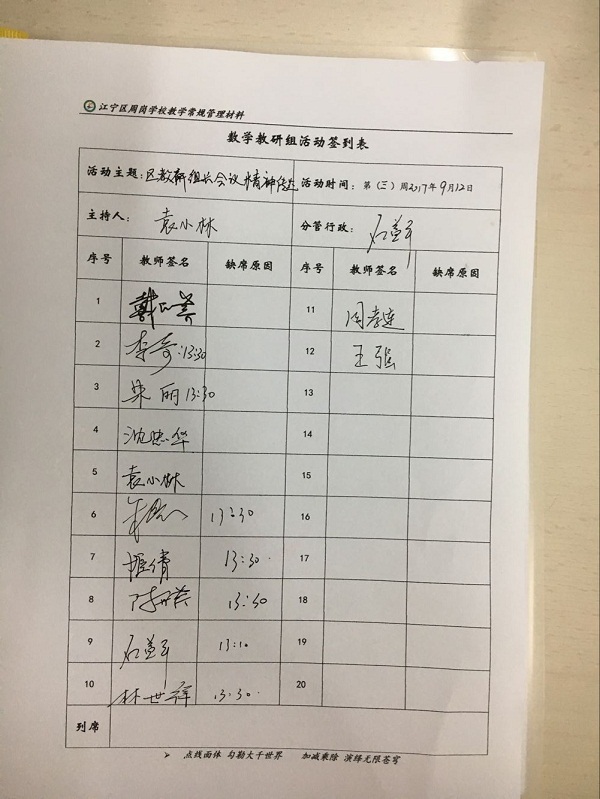 江宁区周岗学校教学常规管理材料
数学教研组活动签到表
活动主题：区教研组长会议精神传达 活动时间：第（三）周2017年9月12日
主持人：袁小林 分管行政：石善平
序号 教师签名 缺席原因 序号 教师签名 缺席原因
1 11 周孝莲
2 李奇：13:30 12 王强
3 朱丽 13:30 13
4 沈忠华 14
5 袁小林 15
6 13:30 16
7 13:30 17
8 13:30 18
9 石善平 13:10 19
10 林世祥 13:30 20
列席
➢ 点线面体 勾勒大千世界 加减乘除 演绎无限苍穹